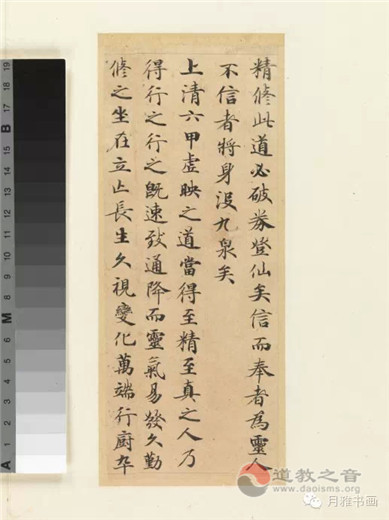 精修此道必破券登仙矣信而奉者為靈人
不信者將身没九泉矣
上清六甲虚映之道當得至精至真之人乃
得行之行之既速致通降而靈氣易發久勤
修之坐在立亡長生久視變化萬端行廚卒
A 1 2 3 4 5 6 M 8 9 10 11 12 13 14 15 B 17 18 19
道教之音
www.daoisms.org
月雅书画